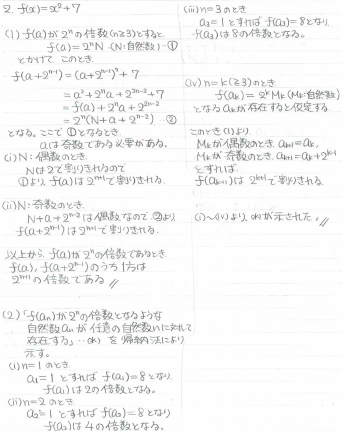 2. f(x)=x²+7
(1) f(a)が2ⁿの倍数(n≥3)とすると
f(a)=2ⁿN (N:自然数)…①
とかけて、このとき
f(a+2ⁿ⁻¹)=(a+2ⁿ⁻¹)²+7
=a²+2ⁿa+2²ⁿ⁻²+7
=f(a)+2ⁿa+2²ⁿ⁻²
=2ⁿ(N+a+2ⁿ⁻²) …②
となる。ここで①となるとき
aは奇数である必要がある。
(i)N:偶数のとき
Nは2で割りきれるので
①よりf(a)は2ⁿ⁺¹で割りきれる
(ii)N:奇数のとき
N+a+2ⁿ⁻²は偶数なので、②より
f(a+2ⁿ⁻¹)は2ⁿ⁺¹で割りきれる
以上から、f(a)が2ⁿの倍数であるとき
f(a), f(a+2ⁿ⁻¹)のうち1方は
2ⁿ⁺¹の倍数である //
(2)「f(aₙ)が2ⁿの倍数となるような
自然数aₙが任意の自然数nに対して
存在する」…(*) を帰納法により
示す。
(i)n=1のとき
a₁=1とすればf(a₁)=8となり
f(a₁)は2の倍数となる。
(ii)n=2のとき
a₂=1とすればf(a₂)=8となり
f(a₂)は4の倍数となる。
(iii)n=3のとき
a₃=1とすればf(a₃)=8となり、
f(a₃)は8の倍数となる。
(iv)n=k(≥3)のとき
f(aₖ)=2ᵏMₖ(Mₖ:自然数)
となるaₖが存在すると仮定する
このとき(1)より、
Mₖが偶数のとき、aₖ₊₁=aₖ,
Mₖが奇数のとき、aₖ₊₁=aₖ+2ᵏ⁻¹
とすれば、
f(aₖ₊₁)は2ᵏ⁺¹で割りきれる。
(i)～(iv)より、(*)が示された。//